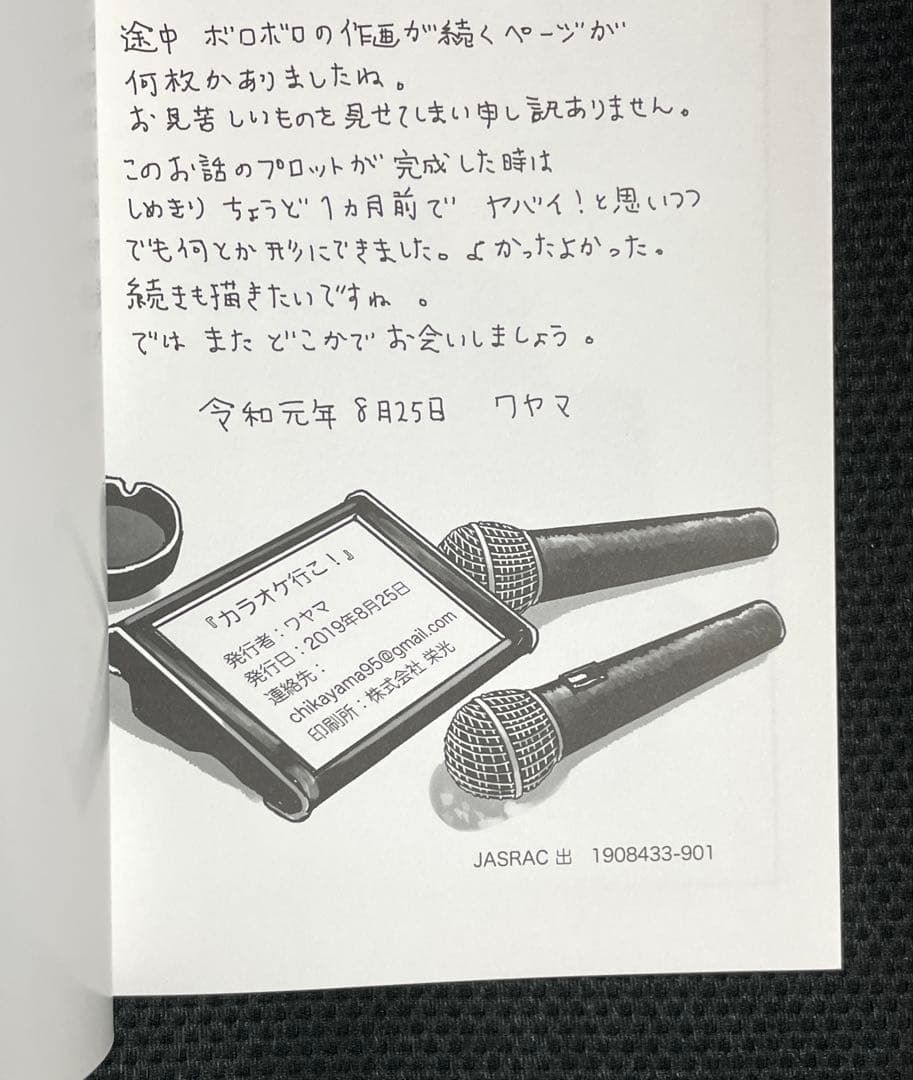 途中 ボロボロの作画が続くページが
何枚かありましたね。
お見苦しいものを見せてしまい申し訳ありません。
このお話のプロットが完成した時は
しめきり ちょうど1ヵ月前で ヤバイ!と思いつつ
でも何とか形にできました。よかったよかった。
続きも描きたいですね 。
では また どこかで お会いしましょう 。
令和元年 8月25日 ワヤマ
『カラオケ行こ!』
発行者:ワヤマ
発行日:2019年8月25日
連絡先:
chikayama95@gmail.com
印刷所:株式会社 栄光
JASRAC 出 1908433-901